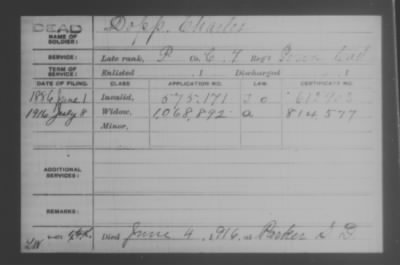 DEAD
NAME OF SOLDIER: Dopp, Charles
SERVICE: Late rank, P Co. C, 7 Reg't Iowa Cav
TERM OF SERVICE: Enlisted , 1 Discharged , 1
DATE OF FILING. CLASS APPLICATION NO. LAW. CERTIFICATE NO.
June 1 Invalid, 575,171
1916 July 8 Widow, 1,068,892 a 814,577
Minor,
ADDITIONAL SERVICES:
REMARKS:
Died June 4, 1916, at